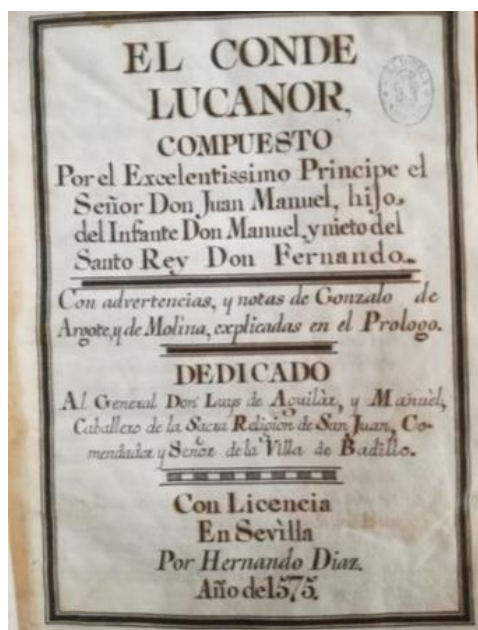 EL CONDE
LUCANOR,
COMPUESTO
Por el Excelentissimo Principe el
Señor Don Juan Manuel, hijo.
del Infante Don Manuel, y nieto del
Santo Rey Don Fernando.
Con advertencias, y notas de Gonzalo de
Argote, y de Molina, explicadas en el Prologo.
DEDICADO
Al General Don Luys de Aguilàr, y Manuèl,
Caballero de la Sacra Religion de San Juan, Co-
mendador y Señor de la Villa de Badillo.
Con Licencia
En Sevìlla
Por Hernando Diaz.
Año de 1575.